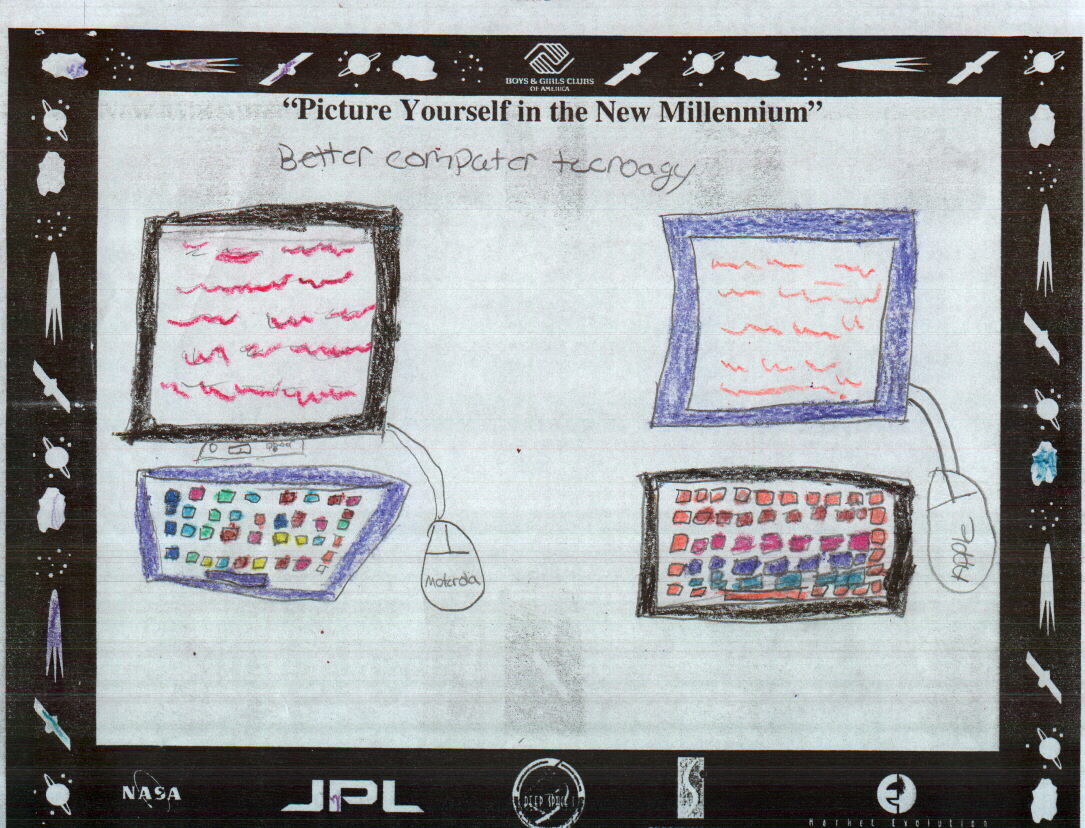 BOYS & GIRLS CLUBS
OF AMERICA
“Picture Yourself in the New Millennium”
Better computer tecnoagy
Motorola
NASA
JPL
DEEP SPACE 1
Market Evolution